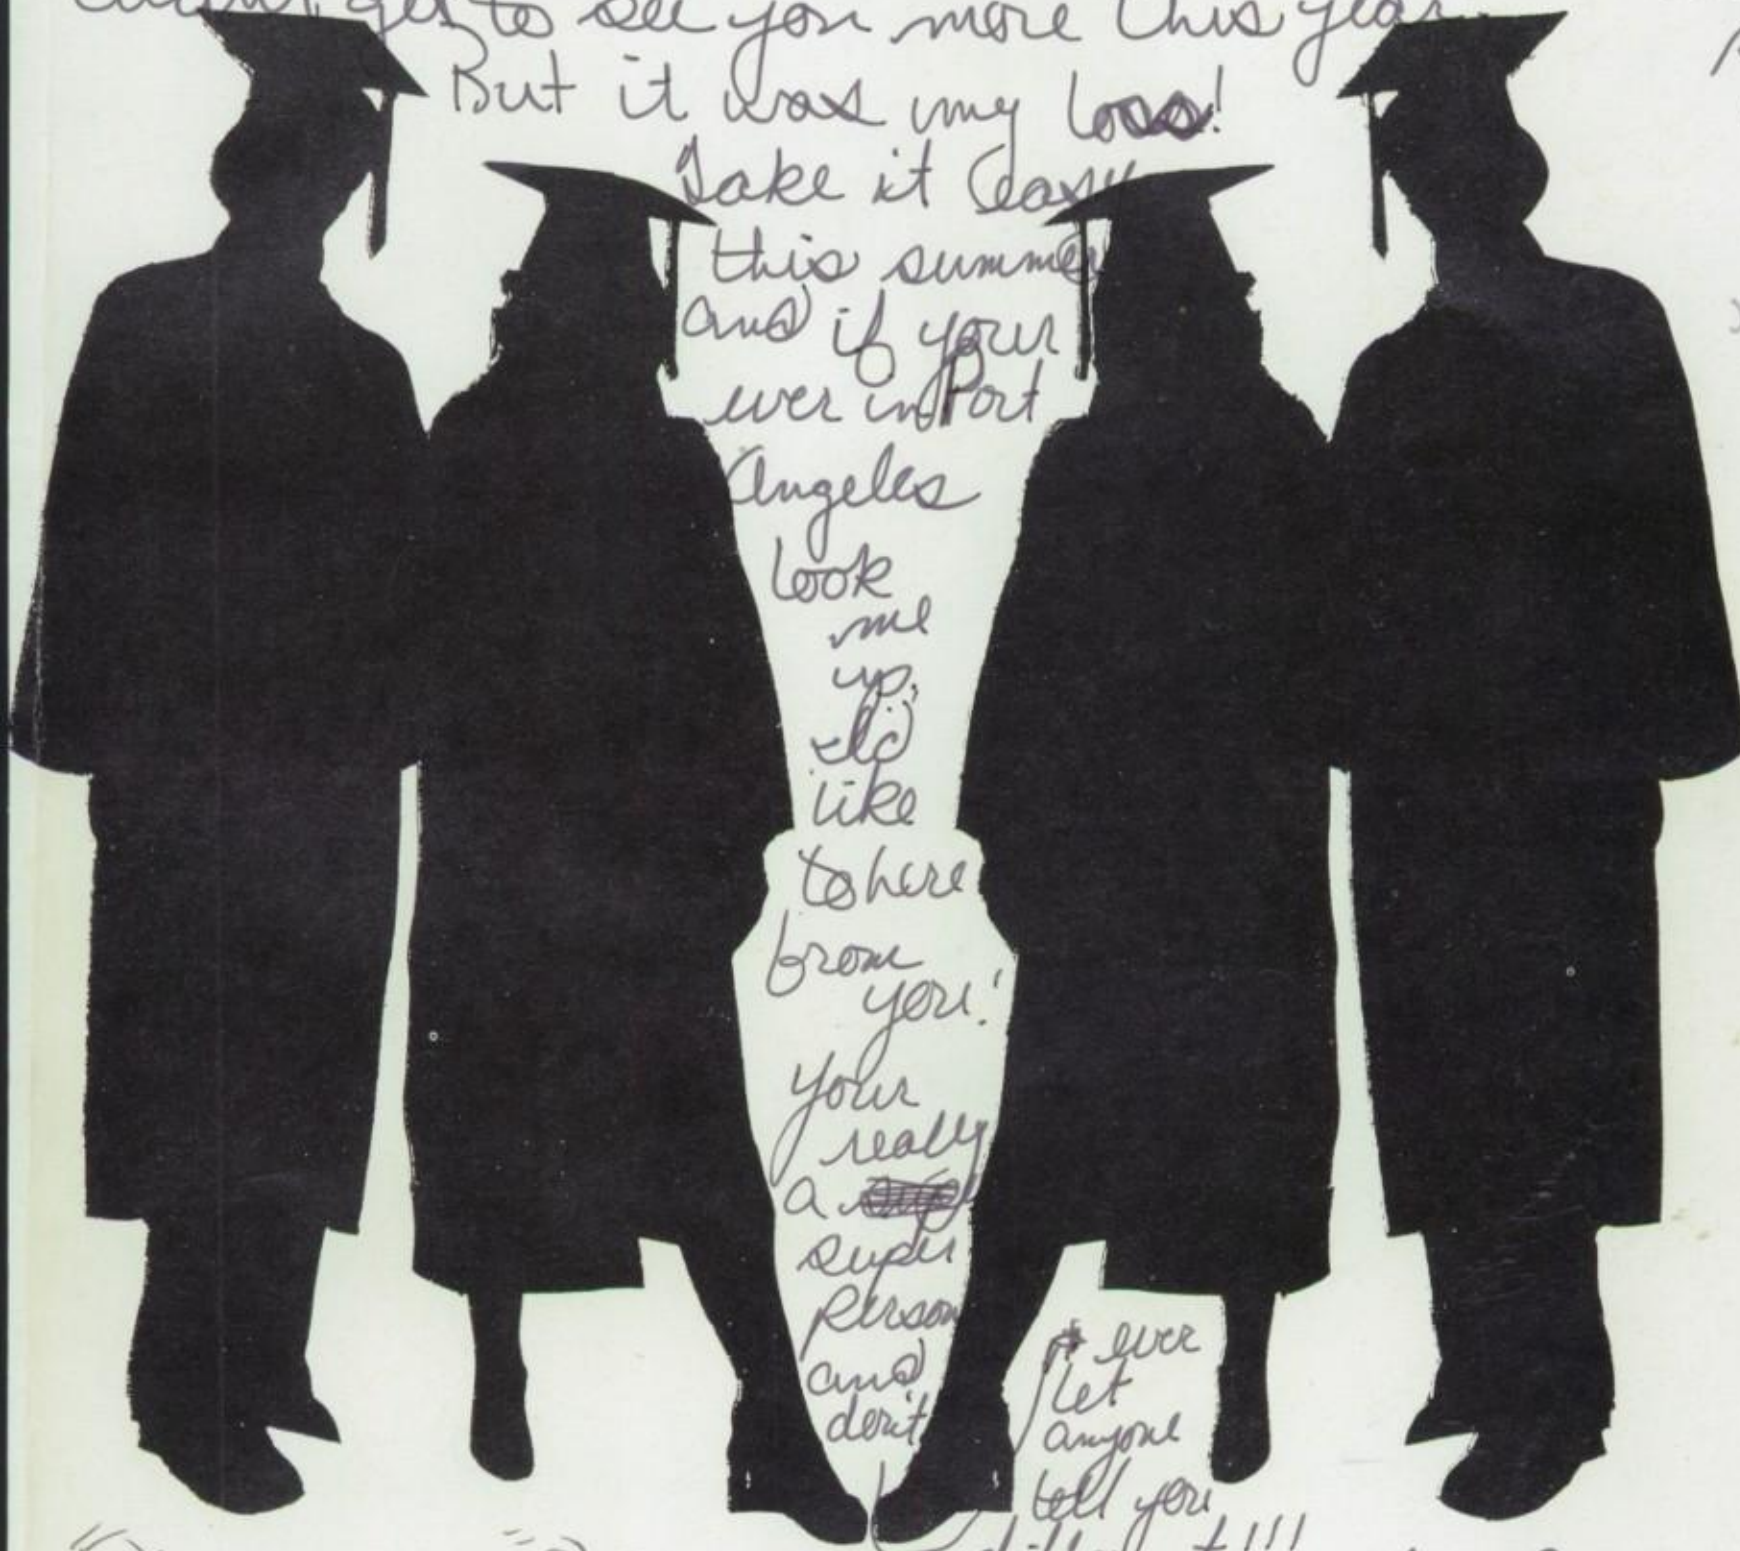 didn't get to see you more this year.
But it was my loss!
Take it easy
this summer
and if your
ever in Port
Angeles
look
me
up,
I'd
like
to here
from
you!
your
really
a
super
person
and
don't
ever
let
anyone
tell you
different!!!